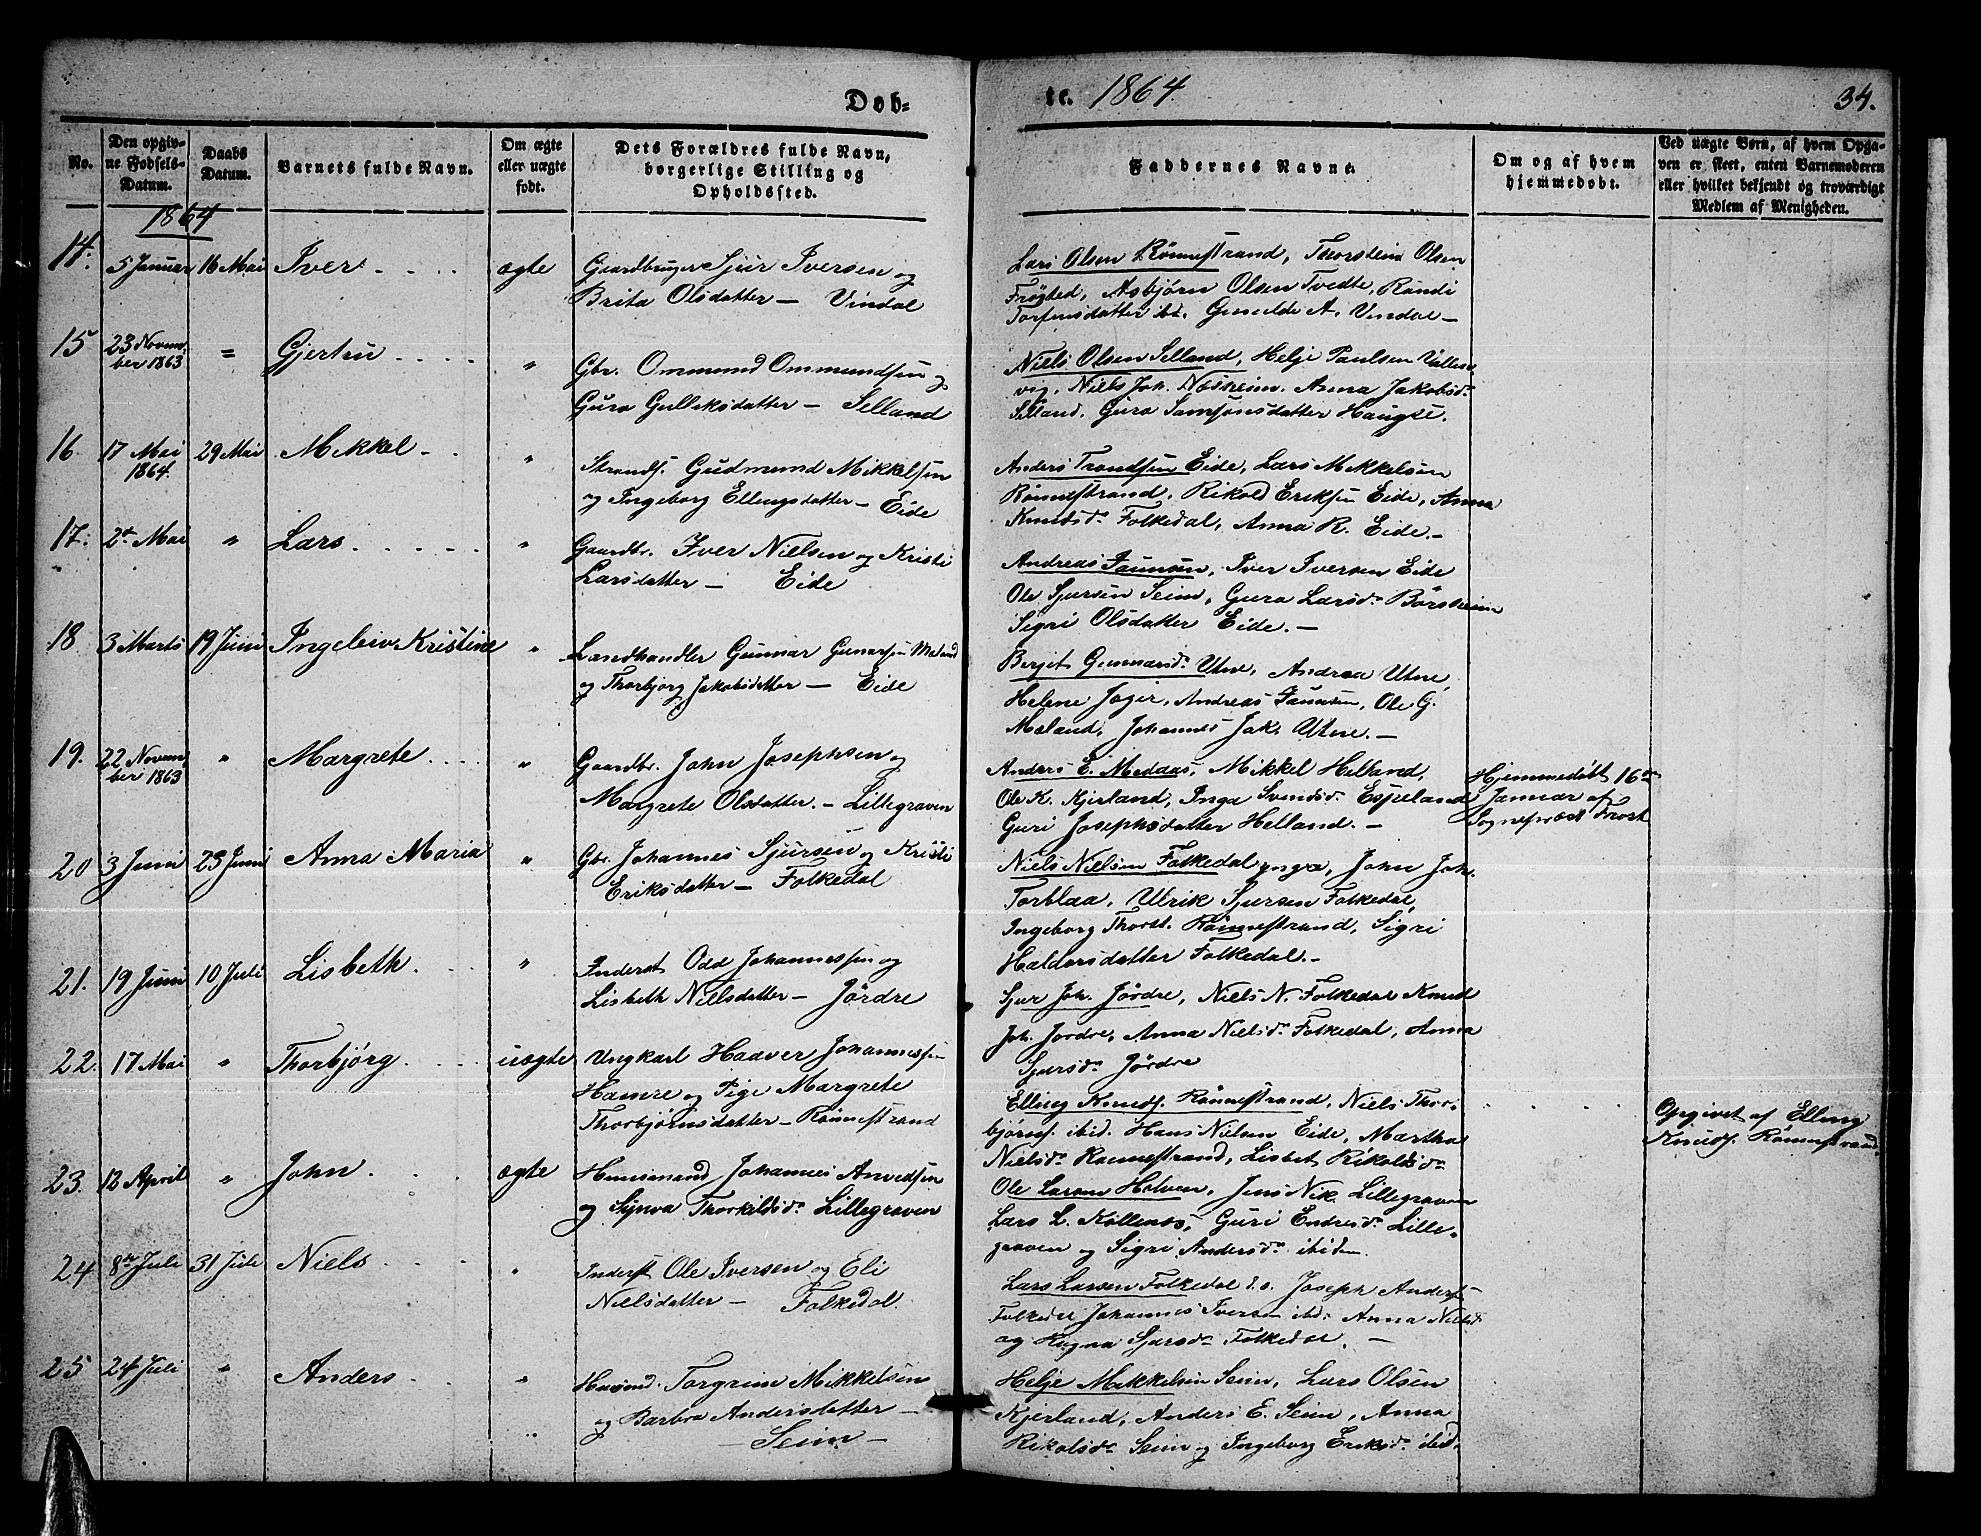 Døb-
te. 1864.
34.
No.
Den opgiv-
ne Fødsels-
Datum.
Daabs
Datum.
Barnets fulde Navn.
Om ægte
eller uægte
født.
Dets Forældres fulde Navn,
borgerlige Stilling og
Opholdssted.
Faddernes Navne.
Om og af hvem
hjemmedøbt.
Ved uægte Børn, af hvem Opga-
ven er skeet, enten Barnemoderen
eller hvilket bekjendt og troværdigt
Medlem af Menigheden.
1864
14. 5 Januar 16 Mai Iver ægte Gaardbruger Sjur Iversen og
Brita Olsdatter – Vindal
Lars Olsen Rønnestrand, Thorstein Olsen
Frøgted, Asbjørn Olsen Tvedte, Randi
Torfinsdatter ibd. Gunilde A. Vindal –
15 23 Novem-
ber 1863 = Gjertru " Gbr. Ommund Ommundsen og
Guro Gulleksdatter – Selland
Niels Olsen Selland, Helje Paulsen Vallen-
vig, Niels Joh. Næsheim, Anna Jakobsd.
Selland, Guro Samsonsdatter Haugse.
16 17 Mai
1864. 29 Mai Mikkel " Strands. Gudmund Mikkelsen
og Ingeborg Ellingsdatter – Eide
Anders Trondsen Eide, Lars Mikkelsen
Rønnestrand, Rikold Eriksen Eide, Anna
Knudsd. Folkedal, Anna R. Eide. –
17. 2den Mai " Lars " Gaardbr. Iver Nielsen og Kristi
Larsdatter – Eide
Andreas Jaunsen, Iver Iversen Eide
Ole Sjursen Seim, Guro Larsd. Børsheim
Sigri Olsdatter Eide. –
18 3 Marts 19 Juni Ingeleiv Kristine " Landhandler Gunnar Gunarsen Maland
og Thorbjørg Jakobsdatter – Eide
Berjit Gunnarsd. Utne, Andrea Utne,
Helene Jager, Andreas Jaunsen, Ole G.
Maland, Johannes Jak. Utne. –
19. 22 Novem-
ber 1863 " Margrete " Gaardbr. John Josephsen og
Margrete Olsdatter. – Lillegraven
Anders E. Medaas, Mikkel Helland,
Ole K. Kjerland, Inga Svendsd. Espeland
Guri Josephsdatter Helland. –
Hjemmedøbt 16de
Januar af
Sognepræst Frost
20 3 Juni 25 Juni Anna Maria " Gbr. Johannes Sjursen og Kristi
Eriksdatter – Folkedal
Niels Nielsen Folkedal yngre, John Joh.
Torblaa, Ulrik Sjursen Folkedal,
Ingeborg Thorst. Rønnestrand, Sigri
Haldorsdatter Folkedal. –
21. 19 Juni 10 Juli Lisbeth " Inderst Odd Johannessen og
Lisbeth Nielsdatter – Jördre
Sjur Joh. Jördre, Niels N. Folkedal Knud
Joh. Jördre, Anna Nielsd. Folkedal, Anna
Sjursd. Jördre
22. 17 Mai " Thorbjörg uægte Ungkarl Haaver Johannessen
Hamre og Pige Margrete
Thorbjørnsdatter – Rønnestrand
Elling Knuds. Rønnestrand, Niels Thor-
bjørns. ibid. Hans Nielsen Eide, Martha
Nielsd. Rønnestrand, Lisbet Rikoldsd.
Opgivet af Elling
Knuds. Rønnestrand.
23. 12 April " John ægte Huusmand Johannes Anvedsen
og Synva Thorkildsd. Lillegraven
Ole Larsen Holven, Jens Nik. Lillegraven
Lars L. Kollenos, Guri Endresd. Lille-
graven og Sigri Andersd. ibidem.
24 8de Juli 31 Juli Niels " Inderst Ole Iversen og Eli
Nielsdatter – Folkedal.
Lars Larsen Folkedal d.e. Joseph Anders.
Folkedal Johannes Iversen ibd. Anna Nielsd.
og Ragna Sjursd. Folkedal. –
25 24 Juli " Anders " Huusmd. Torgrim Mikkelsen
og Barbra Andersdatter –
– Seim –
Helje Mikkelsen Seim, Lars Olsen
Kjerland, Anders E. Seim, Anna
Rikolsd. Seim og Ingeborg Eriksd. ibid.